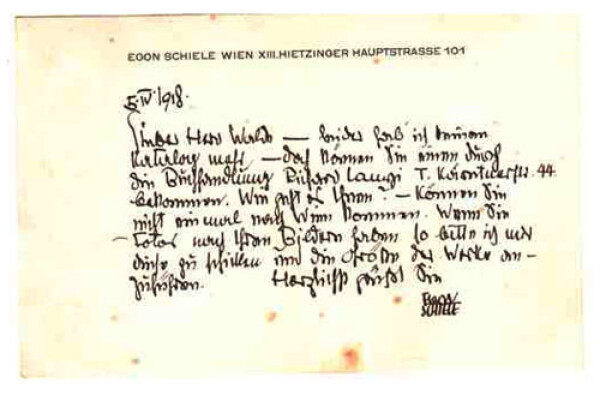 EGON SCHIELE WIEN XIII. HIETZINGER HAUPTSTRASSE 101
5. IV 1918.
Lieber Herr Walde — leider hab ich keinen
Katalog mehr — doch können Sie einen durch
die Buchhandlung Richard Lanyi I. Kärntnerstr. 44
bekommen. Wie geht es Ihnen? — Können Sie
nicht einmal nach Wien kommen. Wenn Sie
— Fotos nach Ihren Bildern haben so bitte ich mir
diese zu schicken und die Größe der Werke an-
zuführen. Herzlichst grüßt Sie
EGON
SCHIELE